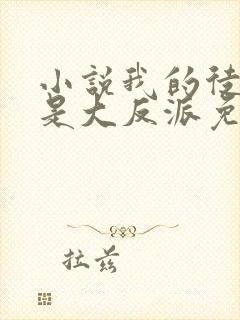 小説我的徒
是大反派免
拉兹